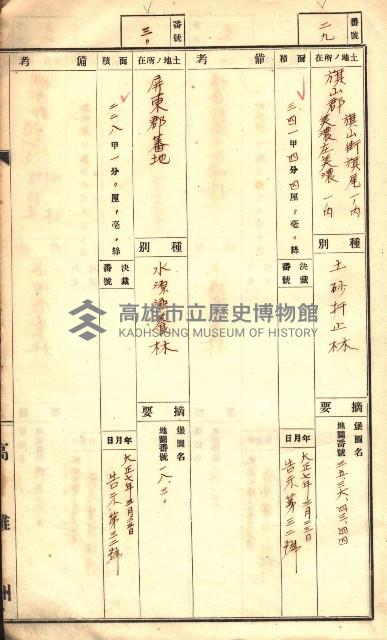 番號
二九
土地ノ所在
旗山街旗尾ノ內
旗山郡美濃庄美濃ノ內
種別
土砂扞止林
摘要
堡圖名
地圖番號 二五、三六、四三、四四
面積
三四一甲四分四厘,毫,絲
決裁番號
年月日
大正七年三月三日
告示第三二號
備考
番號
三〇
土地ノ所在
屏東郡蕃地
種別
水源涵養林
摘要
堡圖名
地圖番號 一八、三〇
面積
二二八甲一分〇厘,毫,絲
決裁番號
年月日
告示第三二號
備考
高雄州
高雄市立歷史博物館
KAOHSIUNG MUSEUM OF HISTORY